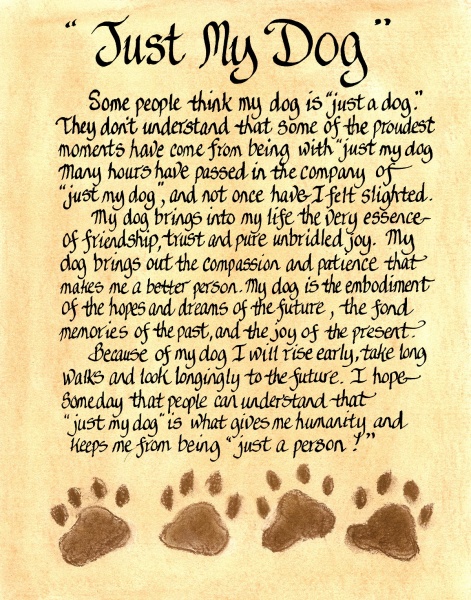 “Just My Dog”
Some people think my dog is “just a dog.”
They don't understand that some of the proudest
moments have come from being with “just my dog
Many hours have passed in the company of
“just my dog”, and not once have I felt slighted.
My dog brings into my life the very essence
of friendship, trust and pure unbridled joy. My
dog brings out the compassion and patience that
makes me a better person. My dog is the embodiment
of the hopes and dreams of the future, the fond
memories of the past, and the joy of the present.
Because of my dog I will rise early, take long
walks and look longingly to the future. I hope
someday that people can understand that
“just my dog” is what gives me humanity and
keeps me from being “just a person!”